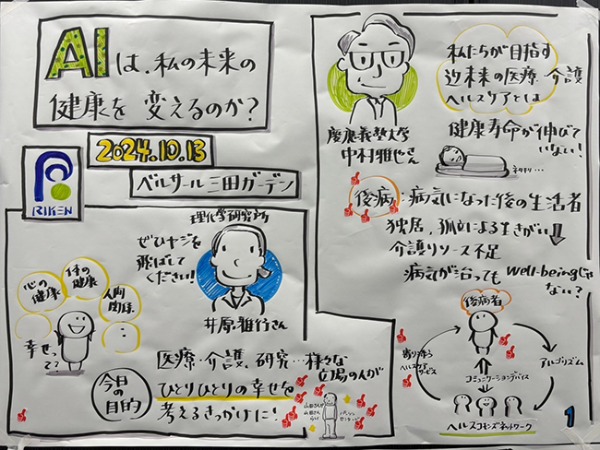 AIは、私の未来の
健康を変えるのか？
2024.10.13
ベルサール三田ガーデン
RIKEN
理化学研究所
ぜひヤジを
飛ばして
ください！
井原雅行さん
心の
健康
体の
健康
人間
関係
幸せっ
て？
今日
の
目的
医療・介護、研究…様々な
立場の人が
ひとりひとりの幸せを
考えるきっかけに！
慶應義塾大学
中村雅也さん
私たちが目指す
近未来の医療・介護
ヘルスケアとは
健康寿命が伸びて
いない！
ネタキリ…
後病：病気になった後の生活者
独居、孤立による生きがい↓
介護リソース不足
病気が治ってもwell-beingじゃ
ない？
後病者
寄り添う
ヘルスケア
サービス
アルゴリズム
コミュニケーションデバイス
ヘルスコモンズネットワーク
1